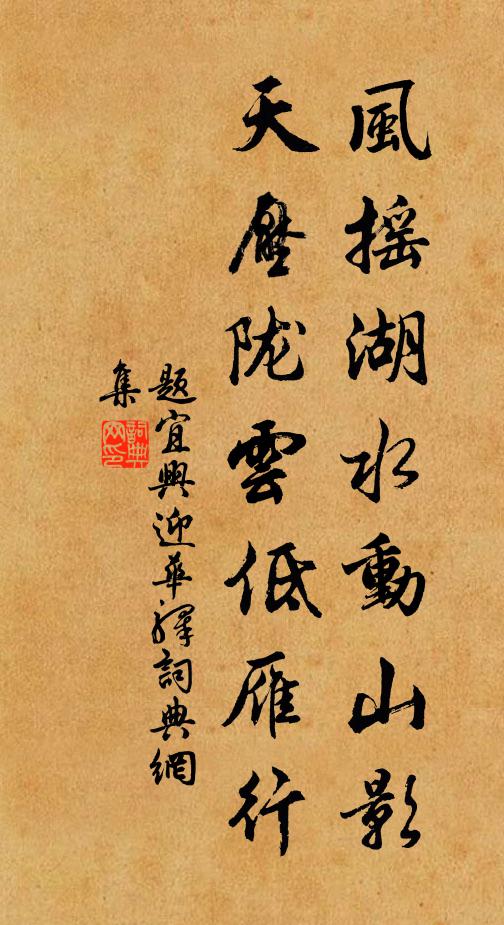 風搖湖水動山影
天壓陇雲低雁行
題宜興迎華驛詞典網
集
詞典
网印